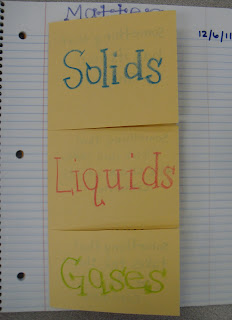 Matter
12/6/11
Solids
Liquids
Gases